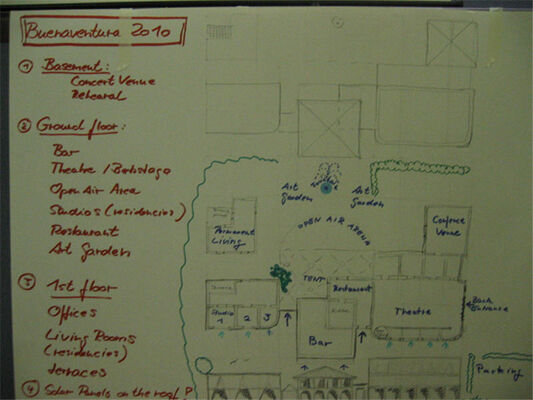 Buenaventura 2010
① Basement:
Concert Venue
Rehearsal
② Ground floor:
Bar
Theatre / Backstage
Open Air Area
Studios (residencies)
Restaurant
Art Garden
③ 1st floor
Offices
Living Rooms
(residencies)
terraces
④ Solar Panels on the roof ?
Art
Garden
Art
Garden
OPEN AIR ARENA
Permanent
Living
Conference
Venue
TENT
Restaurant
Studio
1
2
3
Bar
Theatre
Back
Entrance
Parking